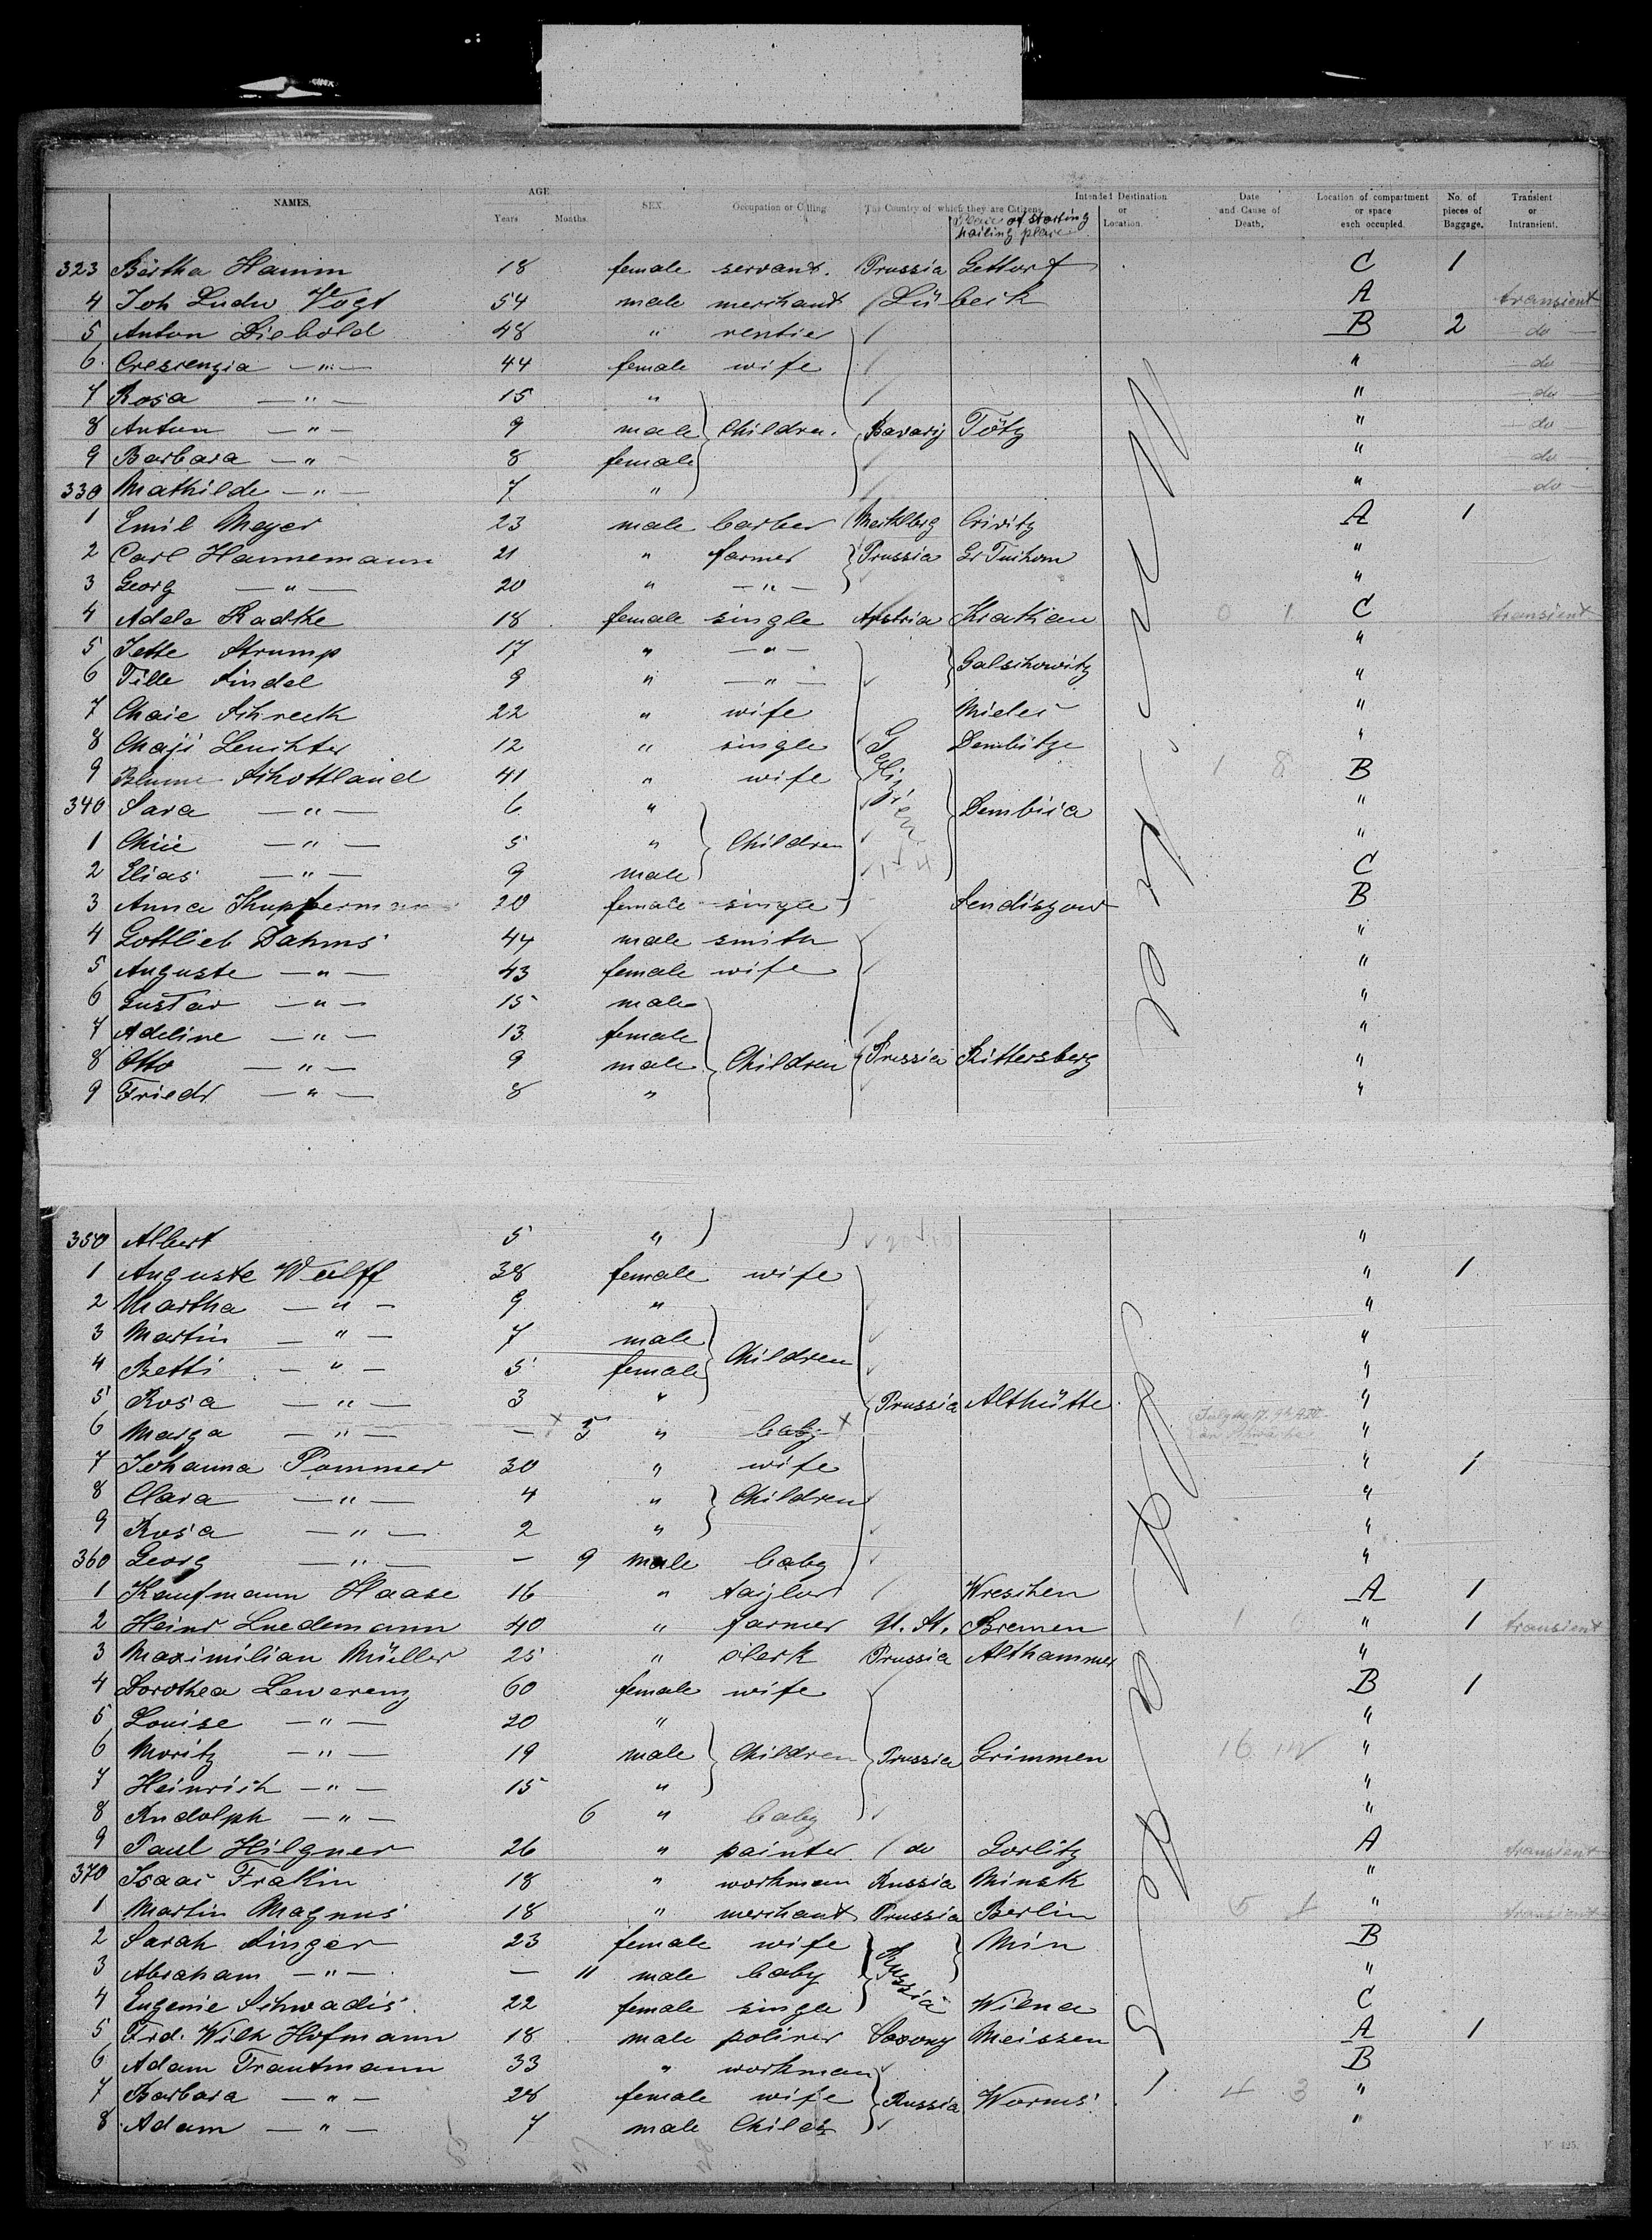 NAMES. AGE Years Months. SEX. Occupation or Calling The Country of which they are Citizens Place of starting hailing place Intended Destination or Location. Date and Cause of Death. Location of compartment or space each occupied. No. of pieces of Baggage. Transient or Intransient.
323 Bertha Hamm 18 female servant. Prussia Gettorf C 1
4 Joh Ludw Vogt 54 male merchant Lübeck A transient
5 Anton Diebold 48 " rentier B 2 do
6 Crescenzia —"— 44 female wife " do
7 Rosa —"— 15 " " do
8 Anton —"— 9 male Children. Bavary Tötz " do
9 Barbara —"— 8 female " do
330 Mathilde —"— 7 " " do
1 Emil Meyer 23 male barber Mecklbg Crivitz A 1
2 Carl Hannemann 21 " farmer Prussia Gr Tuchom "
3 Georg —"— 20 " —"— "
4 Adele Radtke 18 female single Austria Krakau 0 1 C transient
5 Jette Strump 17 " —"— Galschowitz "
6 Tille Sindel 9 " —"— "
7 Chaie Schreck 22 " wife Galizien Mielec "
8 Chaji Leuchter 12 " single Dembitze "
9 Blume Schottland 41 " wife 1 8 B
340 Sara —"— 6 " Dembica "
1 Chiie —"— 5 " Children "
2 Elias —"— 9 male C
3 Anna Kupferman 20 female single Sendiszow B
4 Gottlieb Dahms 44 male smith "
5 Auguste —"— 43 female wife "
6 Gustav —"— 15 male "
7 Adeline —"— 13 female "
8 Otto —"— 9 male Children Prussia Rittersberg "
9 Friedr —"— 8 " "
350 Albert 5 " "
1 Auguste Wulff 38 female wife " 1
2 Martha —"— 9 " "
3 Martin —"— 7 male "
4 Betti —"— 5 female Children "
5 Rosa —"— 3 " Prussia Althütte "
6 Marga —"— — × 5 " baby × "
7 Johanna Pommer 30 " wife " 1
8 Clara —"— 4 " Children "
9 Rosa —"— 2 " "
360 Georg —"— — 9 male baby "
1 Kaufmann Haase 16 " taylor Wreschen A 1
2 Heinr Luedemann 40 " farmer U. St. Bremen 1 6 " 1 transient
3 Maximilian Müller 25 " clerk Prussia Althammer "
4 Dorothea Lewerenz 60 female wife B 1
5 Louise —"— 20 " "
6 Moritz —"— 19 male Children Prussia Grimmen 16 "
7 Heinrich —"— 15 " "
8 Rudolph —"— 6 " baby "
9 Paul Hilgner 26 " painter do Gorlitz A transient
370 Isaac Frakin 18 " workman Russia Minsk "
1 Martin Magnus 18 " merchant Prussia Berlin 5 1 " transient
2 Sarah Singer 23 female wife Russia Min B
3 Abraham —"— — 11 male baby "
4 Eugenie Schwadis 22 female single Wilna C
5 Frd. Wilh Hofmann 18 male polirer Saxony Meissen A 1
6 Adam Trautmann 33 " workman B
7 Barbara —"— 28 female wife Russia Worms 4 3 "
8 Adam —"— 7 male Child "
V. 425.